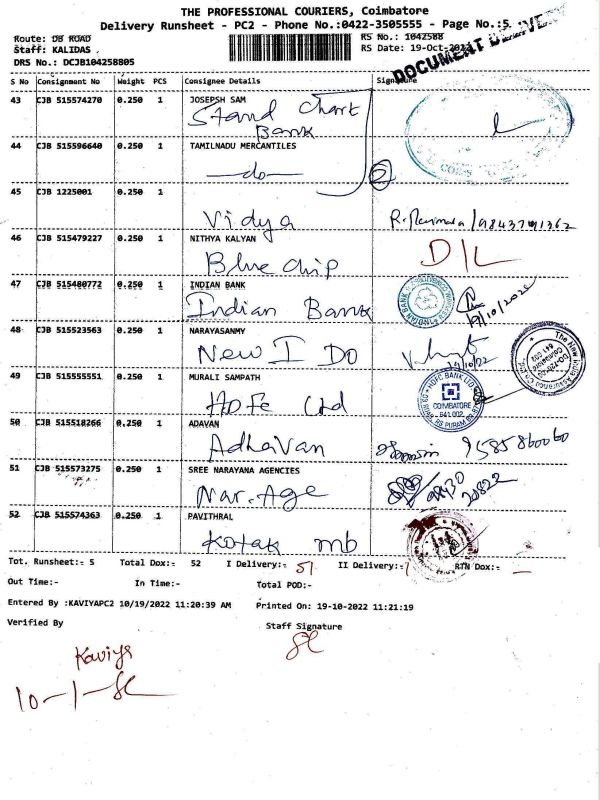 THE PROFESSIONAL COURIERS, Coimbatore
Delivery Runsheet - PC2 - Phone No.:0422-3505555 - Page No.:5
Route: DB ROAD RS No.: 1042588
Staff: KALIDAS RS Date: 19-Oct-2022
DRS No.: DCJB104258805
DOCUMENT DELIVERY
S No Consignment No Weight PCS Consignee Details Signature
43 CJB 515574270 0.250 1 JOSEPSH SAM
Stand Chart
Bank
44 CJB 515596640 0.250 1 TAMILNADU MERCANTILES
do 2
45 CJB 1225001 0.250 1
Vidya 9843791362
46 CJB 515479227 0.250 1 NITHYA KALYAN
Blue chip D/L
47 CJB 515480772 0.250 1 INDIAN BANK
Indian Bank
48 CJB 515523563 0.250 1 NARAYASANMY
New I Do
49 CJB 515555551 0.250 1 MURALI SAMPATH
HDFC Ltd
HDFC BANK LTD
COIMBATORE
641 002
50 CJB 515518266 0.250 1 ADAVAN
Adhavan 9585860060
51 CJB 515573275 0.250 1 SREE NARAYANA AGENCIES
Nar. Age 98430
20822
52 CJB 515574363 0.250 1 PAVITHRAL
Kotak mb
Tot. Runsheet:- 5 Total Dox:- 52 I Delivery:- 51 II Delivery:- 1 RTN Dox:- —
Out Time:- In Time:- Total POD:-
Entered By :KAVIYAPC2 10/19/2022 11:20:39 AM Printed On: 19-10-2022 11:21:19
Verified By Staff Signature
Kaviya